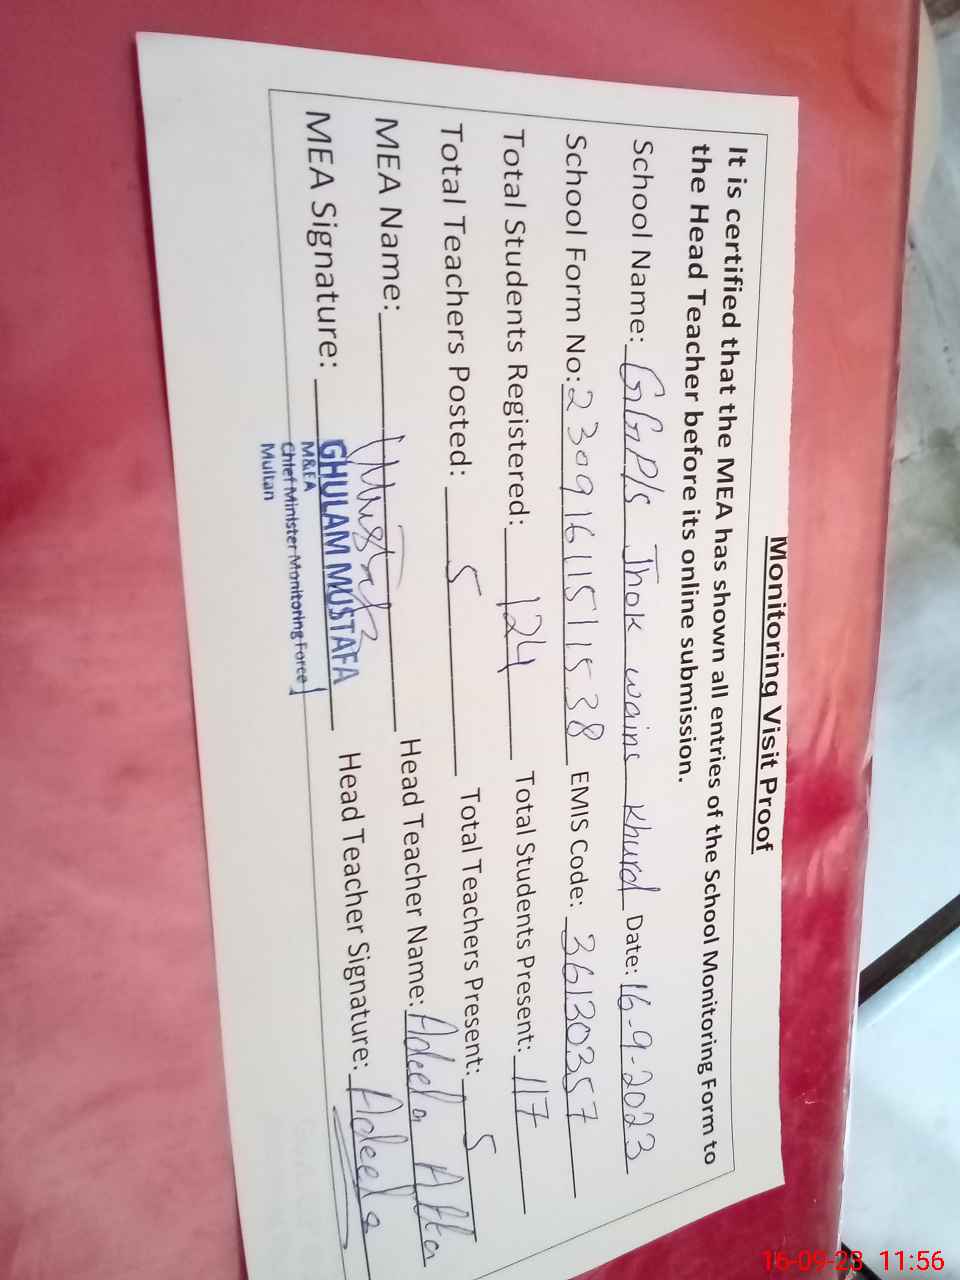 Monitoring Visit Proof
It is certified that the MEA has shown all entries of the School Monitoring Form to
the Head Teacher before its online submission.
School Name: GGP/s Jhok wains Khurd Date: 16-9-2023
School Form No: 23091611511538 EMIS Code: 36130357
Total Students Registered: 124 Total Students Present: 117
Total Teachers Posted: 5 Total Teachers Present: 5
MEA Name: Head Teacher Name: Adeela Atta
MEA Signature: Mustafa Head Teacher Signature: Adeela
GHULAM MUSTAFA
M&EA
Chief Minister Monitoring Force
Multan
16-09-23 11:56